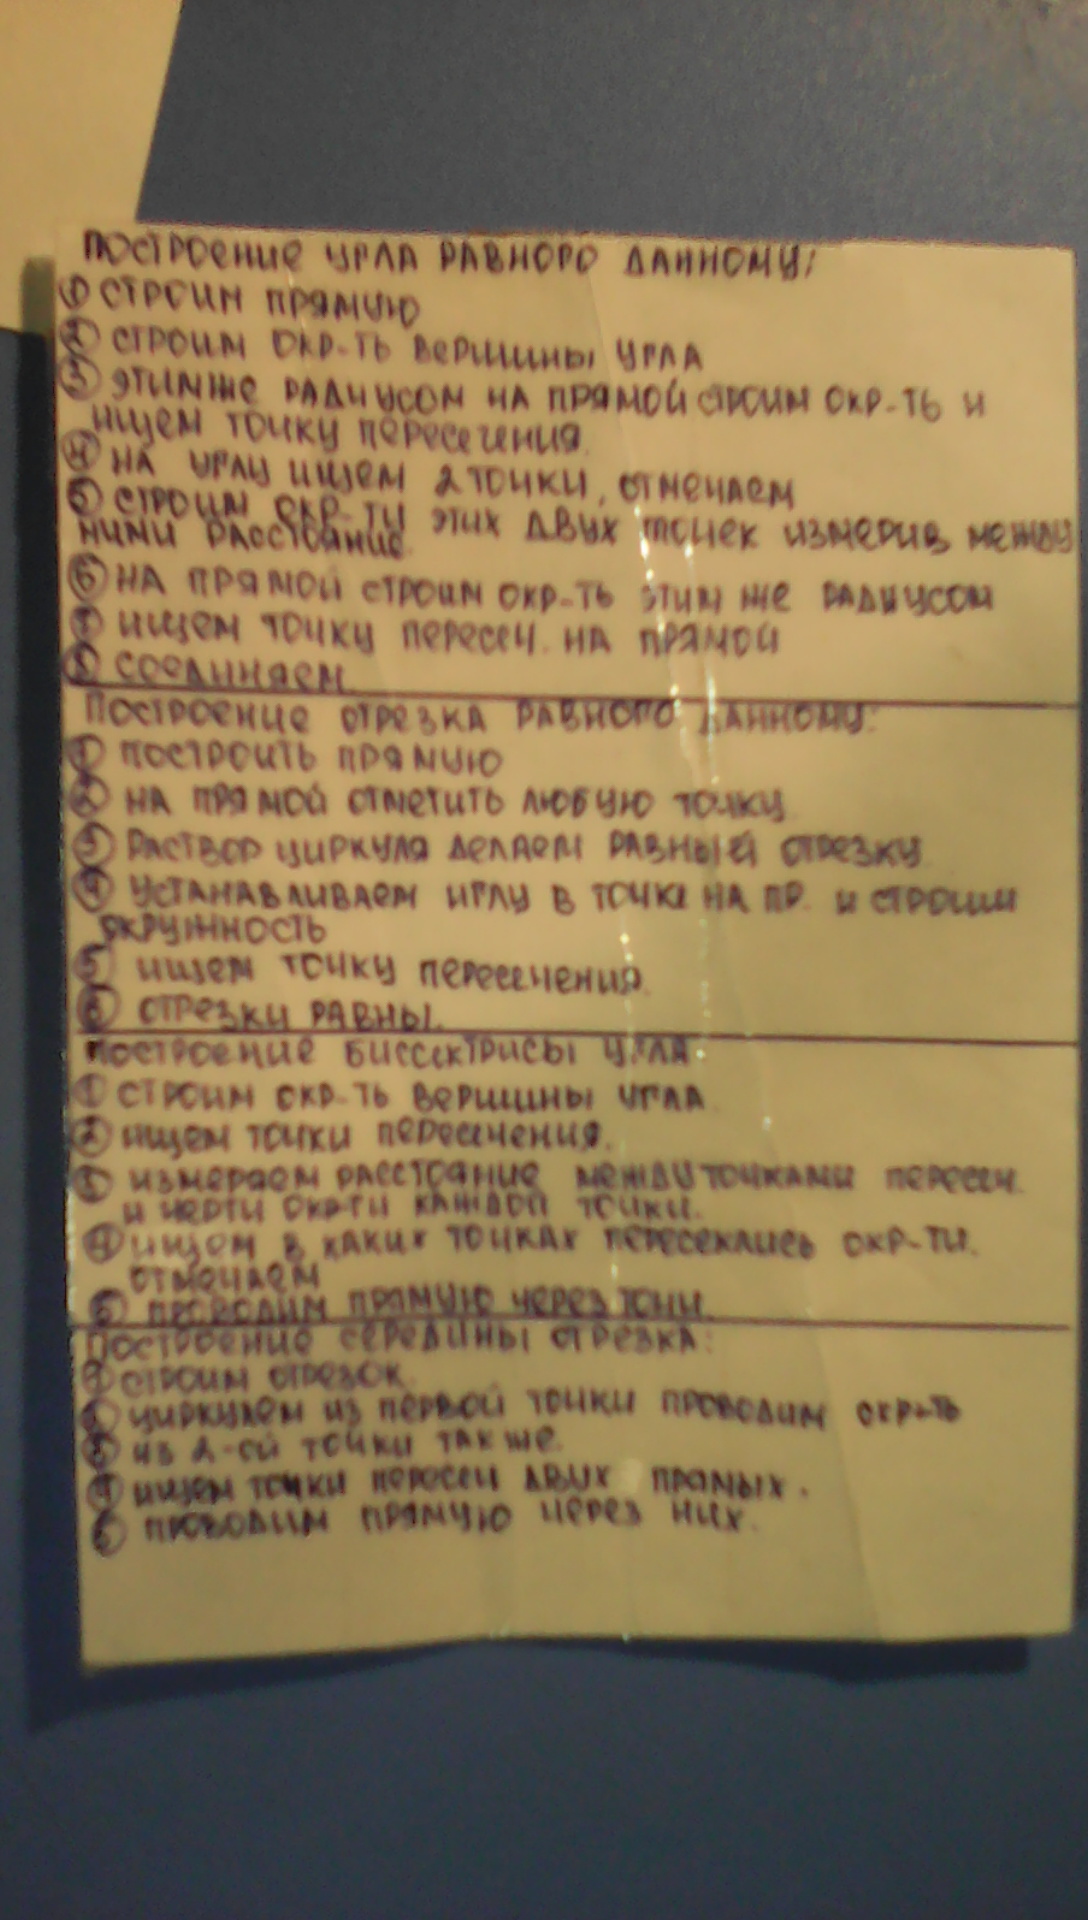 ПОСТРОЕНИЕ УГЛА РАВНОГО ДАННОМУ:
① СТРОИМ ПРЯМУЮ
② СТРОИМ ОКР-ТЬ ВЕРШИНЫ УГЛА
③ ЭТИМ ЖЕ РАДИУСОМ НА ПРЯМОЙ СТРОИМ ОКР-ТЬ И
ИЩЕМ ТОЧКУ ПЕРЕСЕЧЕНИЯ.
④ НА УГЛУ ИЩЕМ 2 ТОЧКИ, ОТМЕЧАЕМ
⑤ СТРОИМ ОКР-ТИ ЭТИХ ДВУХ ТОЧЕК ИЗМЕРИВ МЕЖДУ
НИМИ РАССТОЯНИЕ.
⑥ НА ПРЯМОЙ СТРОИМ ОКР-ТЬ ЭТИМ ЖЕ РАДИУСОМ
⑦ ИЩЕМ ТОЧКУ ПЕРЕСЕЧ. НА ПРЯМОЙ
⑧ СОЕДИНЯЕМ.
ПОСТРОЕНИЕ ОТРЕЗКА РАВНОГО ДАННОМУ:
① ПОСТРОИТЬ ПРЯМУЮ
② НА ПРЯМОЙ ОТМЕТИТЬ ЛЮБУЮ ТОЧКУ
③ РАСТВОР ЦИРКУЛЯ ДЕЛАЕМ РАВНЫЙ ОТРЕЗКУ
④ УСТАНАВЛИВАЕМ ИГЛУ В ТОЧКЕ НА ПР. И СТРОИМ
ОКРУЖНОСТЬ
⑤ ИЩЕМ ТОЧКУ ПЕРЕСЕЧЕНИЯ.
⑥ ОТРЕЗКИ РАВНЫ.
ПОСТРОЕНИЕ БИССЕКТРИСЫ УГЛА:
① СТРОИМ ОКР-ТЬ ВЕРШИНЫ УГЛА
② ИЩЕМ ТОЧКИ ПЕРЕСЕЧЕНИЯ.
③ ИЗМЕРЯЕМ РАССТОЯНИЕ МЕЖДУ ТОЧКАМИ ПЕРЕСЕЧ.
И ЧЕРТИ ОКР-ТИ КАЖДОЙ ТОЧКИ.
④ ИЩЕМ В КАКИХ ТОЧКАХ ПЕРЕСЕКЛИСЬ ОКР-ТИ.
ОТМЕЧАЕМ
⑤ ПРОВОДИМ ПРЯМУЮ ЧЕРЕЗ
ПОСТРОЕНИЕ СЕРЕДИНЫ ОТРЕЗКА:
① СТРОИМ ОТРЕЗОК
② ЦИРКУЛЕМ ИЗ ПЕРВОЙ ТОЧКИ ПРОВОДИМ ОКР-ТЬ
③ ИЗ 2-ОЙ ТОЧКИ ТАК ЖЕ.
④ ИЩЕМ ТОЧКИ ПЕРЕСЕЧ ДВУХ ПРЯМЫХ.
ПРОВОДИМ ПРЯМУЮ ЧЕРЕЗ НИХ.